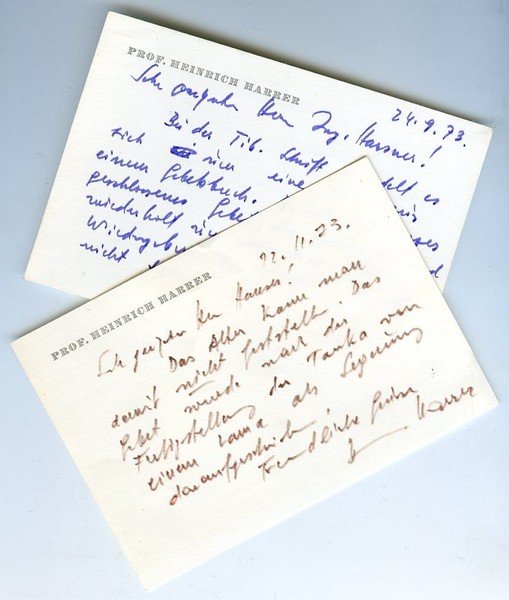 PROF. HEINRICH HARRER
24.9.73.
Sehr geehrter Herr Ing.
Bei der Tib. Schrift handelt es
sich um eine
einem Gebetsbuch.
geschlossenes Gebet
wiederholt
Wiedergabe
nicht
PROF. HEINRICH HARRER
22.11.73.
Sehr geehrter Herr
Das Alter kann man
damit nicht feststellen. Das
Gebet wurde nach der
Fertigstellung der Tanka von
einem Lama als Segnung
daraufgeschrieben.
Freundliche Grüsse
Harrer